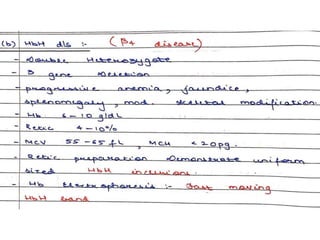 (b) HbH d/s :- (β4 disease)
- Double Heterozygote
- 3 gene Deletion
- progressive anemia, jaundice,
splenomegaly, mod. skeletal modification.
- Hb 6-10 g/dL
- Retic 4-10%
- MCV 55-65 fL, MCH < 20 pg.
- Retic preparation Demonstrate uniform
sized HbH inclusions.
- Hb Electrophoresis :- fast moving
HbH band